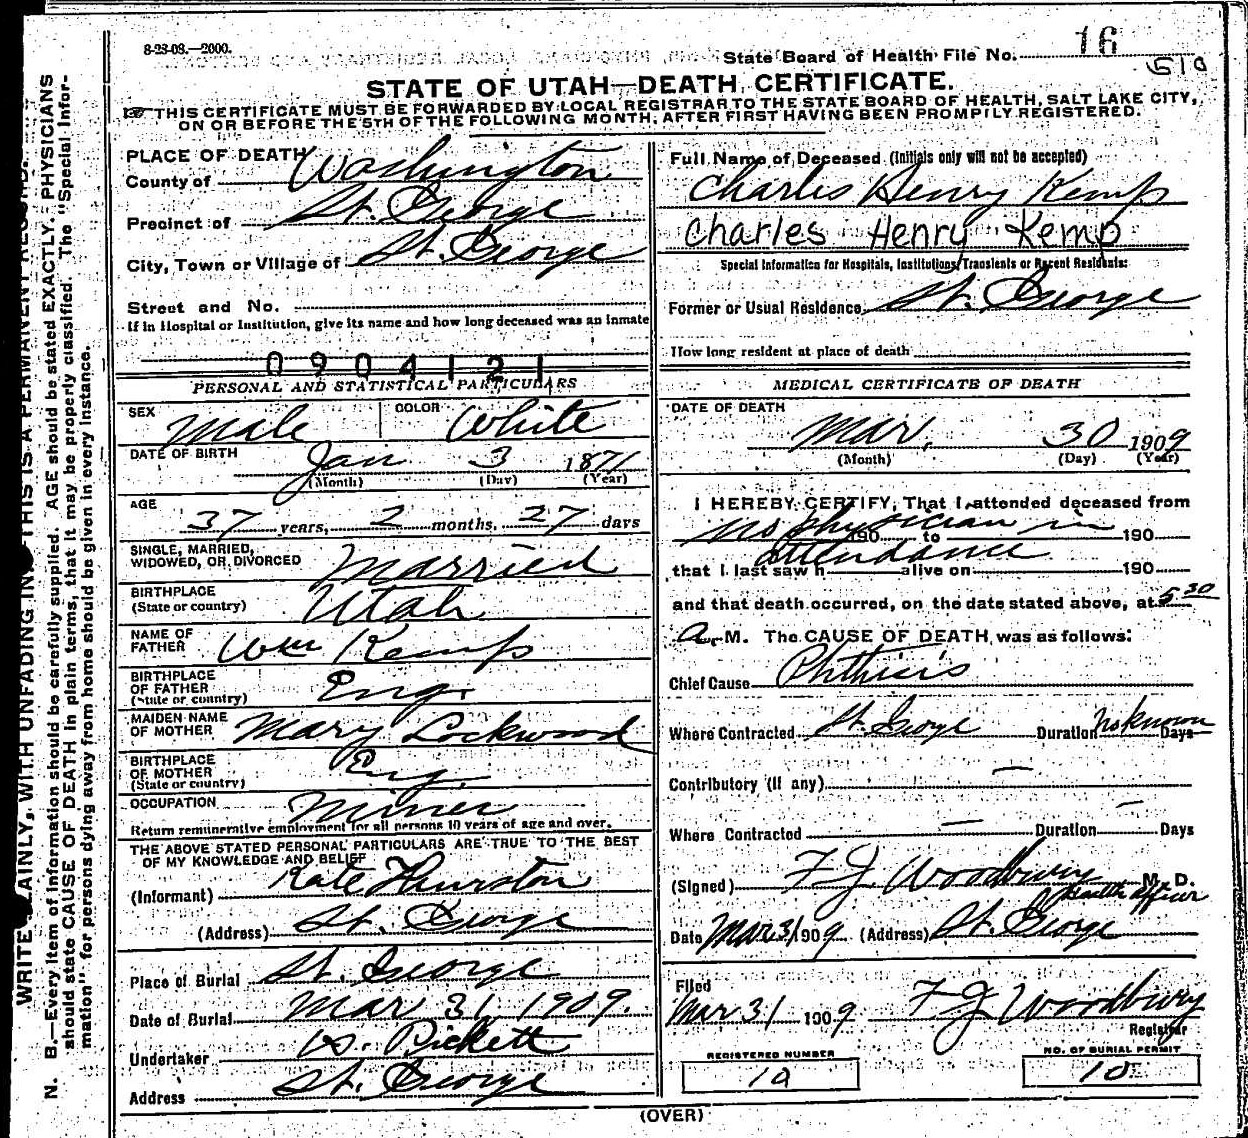 8-23-08.—2000.
State Board of Health File No. 16
510
STATE OF UTAH—DEATH CERTIFICATE.
THIS CERTIFICATE MUST BE FORWARDED BY LOCAL REGISTRAR TO THE STATE BOARD OF HEALTH, SALT LAKE CITY,
ON OR BEFORE THE 5TH OF THE FOLLOWING MONTH, AFTER FIRST HAVING BEEN PROMPTLY REGISTERED.
WRITE PLAINLY, WITH UNFADING INK THIS IS A PERMANENT RECORD.
N. B.—Every item of information should be carefully supplied. AGE should be stated EXACTLY. PHYSICIANS
should state CAUSE OF DEATH in plain terms, that it may be properly classified. The "Special Infor-
mation" for persons dying away from home should be given in every instance.
PLACE OF DEATH
County of Washington
Precinct of St. George
City, Town or Village of St. George
Street and No.
If in Hospital or Institution, give its name and how long deceased was an inmate
0904121
PERSONAL AND STATISTICAL PARTICULARS
SEX Male COLOR White
DATE OF BIRTH Jan 3 1871
(Month) (Day) (Year)
AGE
37 years, 2 months, 27 days
SINGLE, MARRIED,
WIDOWED, OR DIVORCED Married
BIRTHPLACE
(State or country) Utah
NAME OF
FATHER Wm Kemp
BIRTHPLACE
OF FATHER
(State or country) Eng.
MAIDEN NAME
OF MOTHER Mary Lockwood
BIRTHPLACE
OF MOTHER
(State or country) Eng.
OCCUPATION Miner
Return remunerative employment for all persons 10 years of age and over.
THE ABOVE STATED PERSONAL PARTICULARS ARE TRUE TO THE BEST
OF MY KNOWLEDGE AND BELIEF
(Informant) Kate Thurston
(Address) St. George
Place of Burial St. George
Date of Burial Mar 31, 1909.
Undertaker W. Pickett
Address St. George
Full Name of Deceased (Initials only will not be accepted)
Charles Henry Kemp
Charles Henry Kemp
Special Information for Hospitals, Institutions, Transients or Recent Residents:
Former or Usual Residence St. George
How long resident at place of death
MEDICAL CERTIFICATE OF DEATH
DATE OF DEATH
Mar. 30 1909
(Month) (Day) (Year)
I HEREBY CERTIFY, That I attended deceased from
no physician in 190 to 190
attendance
that I last saw h alive on 190
and that death occurred, on the date stated above, at 5 30
A. M. The CAUSE OF DEATH was as follows:
Chief Cause Phthisis
Where Contracted St. George Duration Not known Days
Contributory (If any) —
Where Contracted — Duration — Days
(Signed) F J Woodbury M. D.
Health officer
Date Mar 31 1909 (Address) St. George
Filed
Mar 31 1909 F J Woodbury
Registrar
REGISTERED NUMBER
10
NO. OF BURIAL PERMIT
10
(OVER)